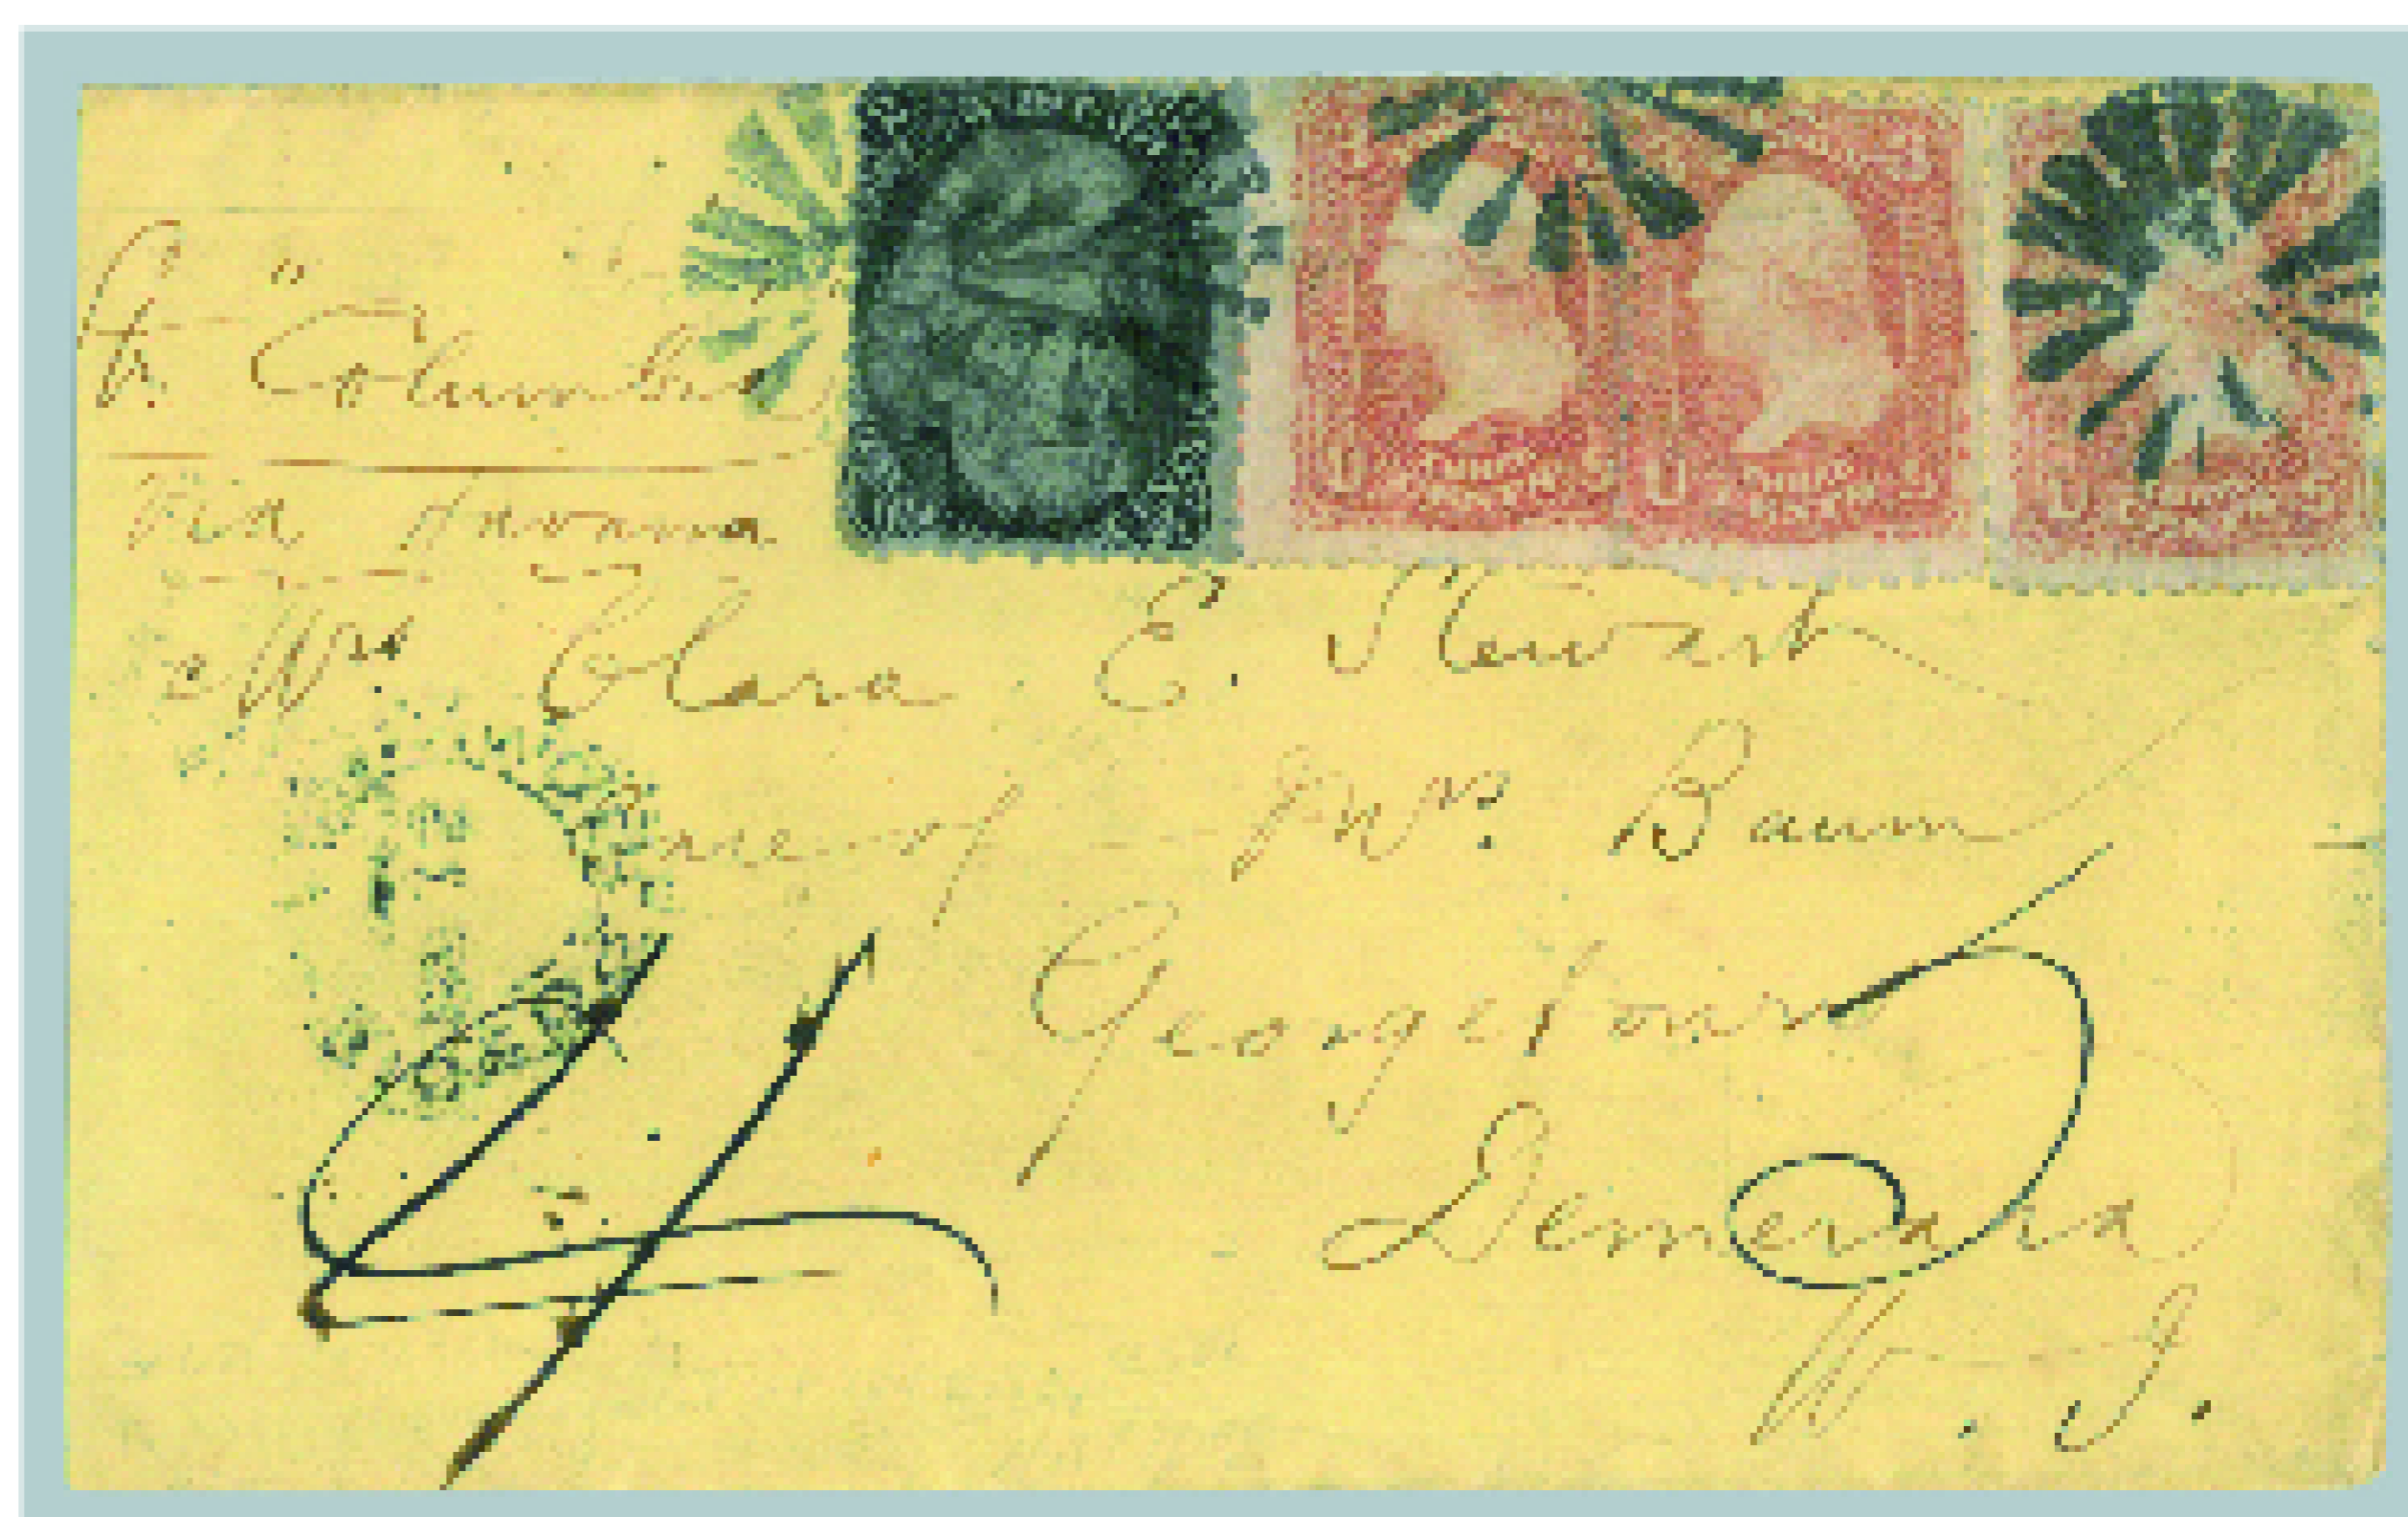 "Columbia
Via Havanna
Mrs Clara E. Stewart
Care of Wm. Baum
Georgetown
Demerara
W. I.
4